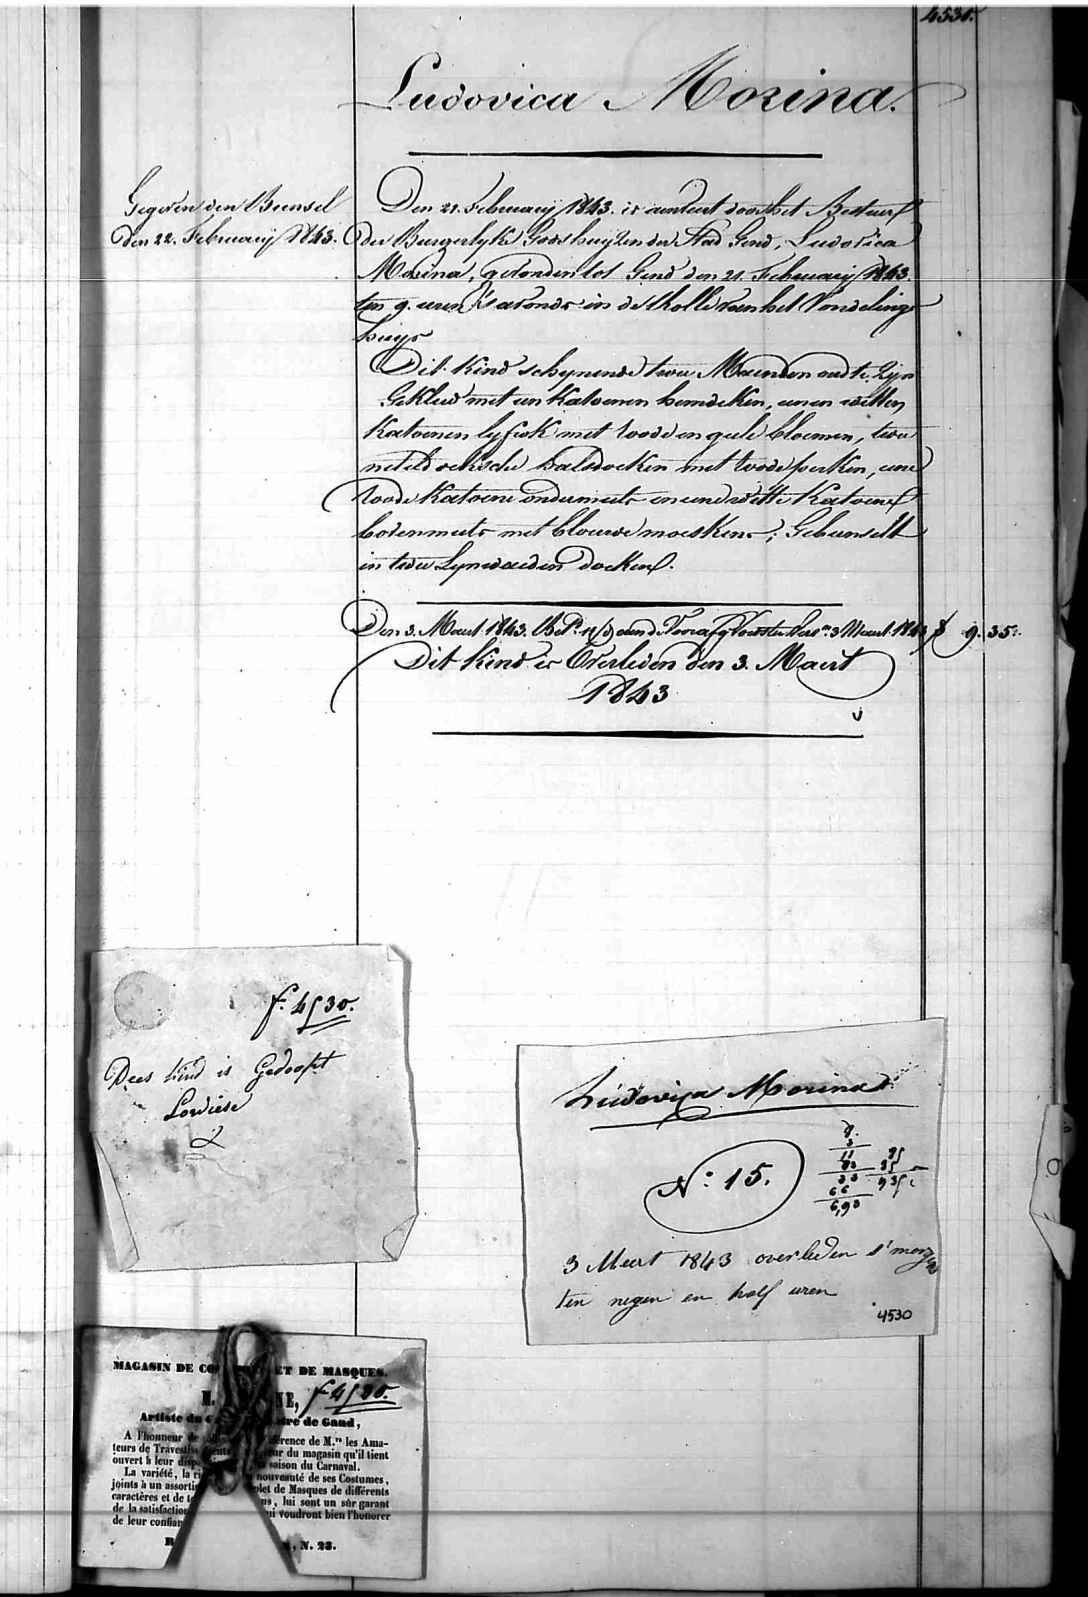 4530.
Ludovica Morina.
Gegeven den Bunsel
den 22. February 1843.
Den 21. February 1843. is aenveert door het Bestuer
der Burgerlyke Godshuyzen der Stad Gend, Ludovica
Morina, gevonden tot Gend den 21. February 1843.
ten 9. uren 's avonds in de Rolle van het Vondelings
huys
Dit kind schynende twee Maenden oud te zyn
Gekleed met een katoenen hemdeken, eenen witten
katoenen lyfrok met roode en geele bloemen, twee
neteldoeksche halsdoeken met roode perken, eene
roode katoene ondermuts en eene witte katoene
bovenmuts met blauwe moeskens; Gebunselt
in twee Lynwaeden doeken.
Den 3. Maert 1843. 3 Maert 1843 f 9. 35.
Dit kind is Overleden den 3. Maert
1843
f. 4530.
Dees kind is Gedoopt
Lowiese
Ludovica Morina
N.º 15.
3 Meert 1843 overleden s' morgens
ten negen en half uren
4530
MAGASIN DE ET DE MASQUES.
f 4530.
Artiste du de Gand,
A l'honneur de M.rs les Ama-
teurs de du magasin qu'il tient
ouvert à leur saison du Carnaval.
La variété, la nouveauté de ses Costumes,
joints à un de Masques de différents
caractères et de lui sont un sûr garant
de la satisfaction voudront bien l'honorer
de leur
N. 23.